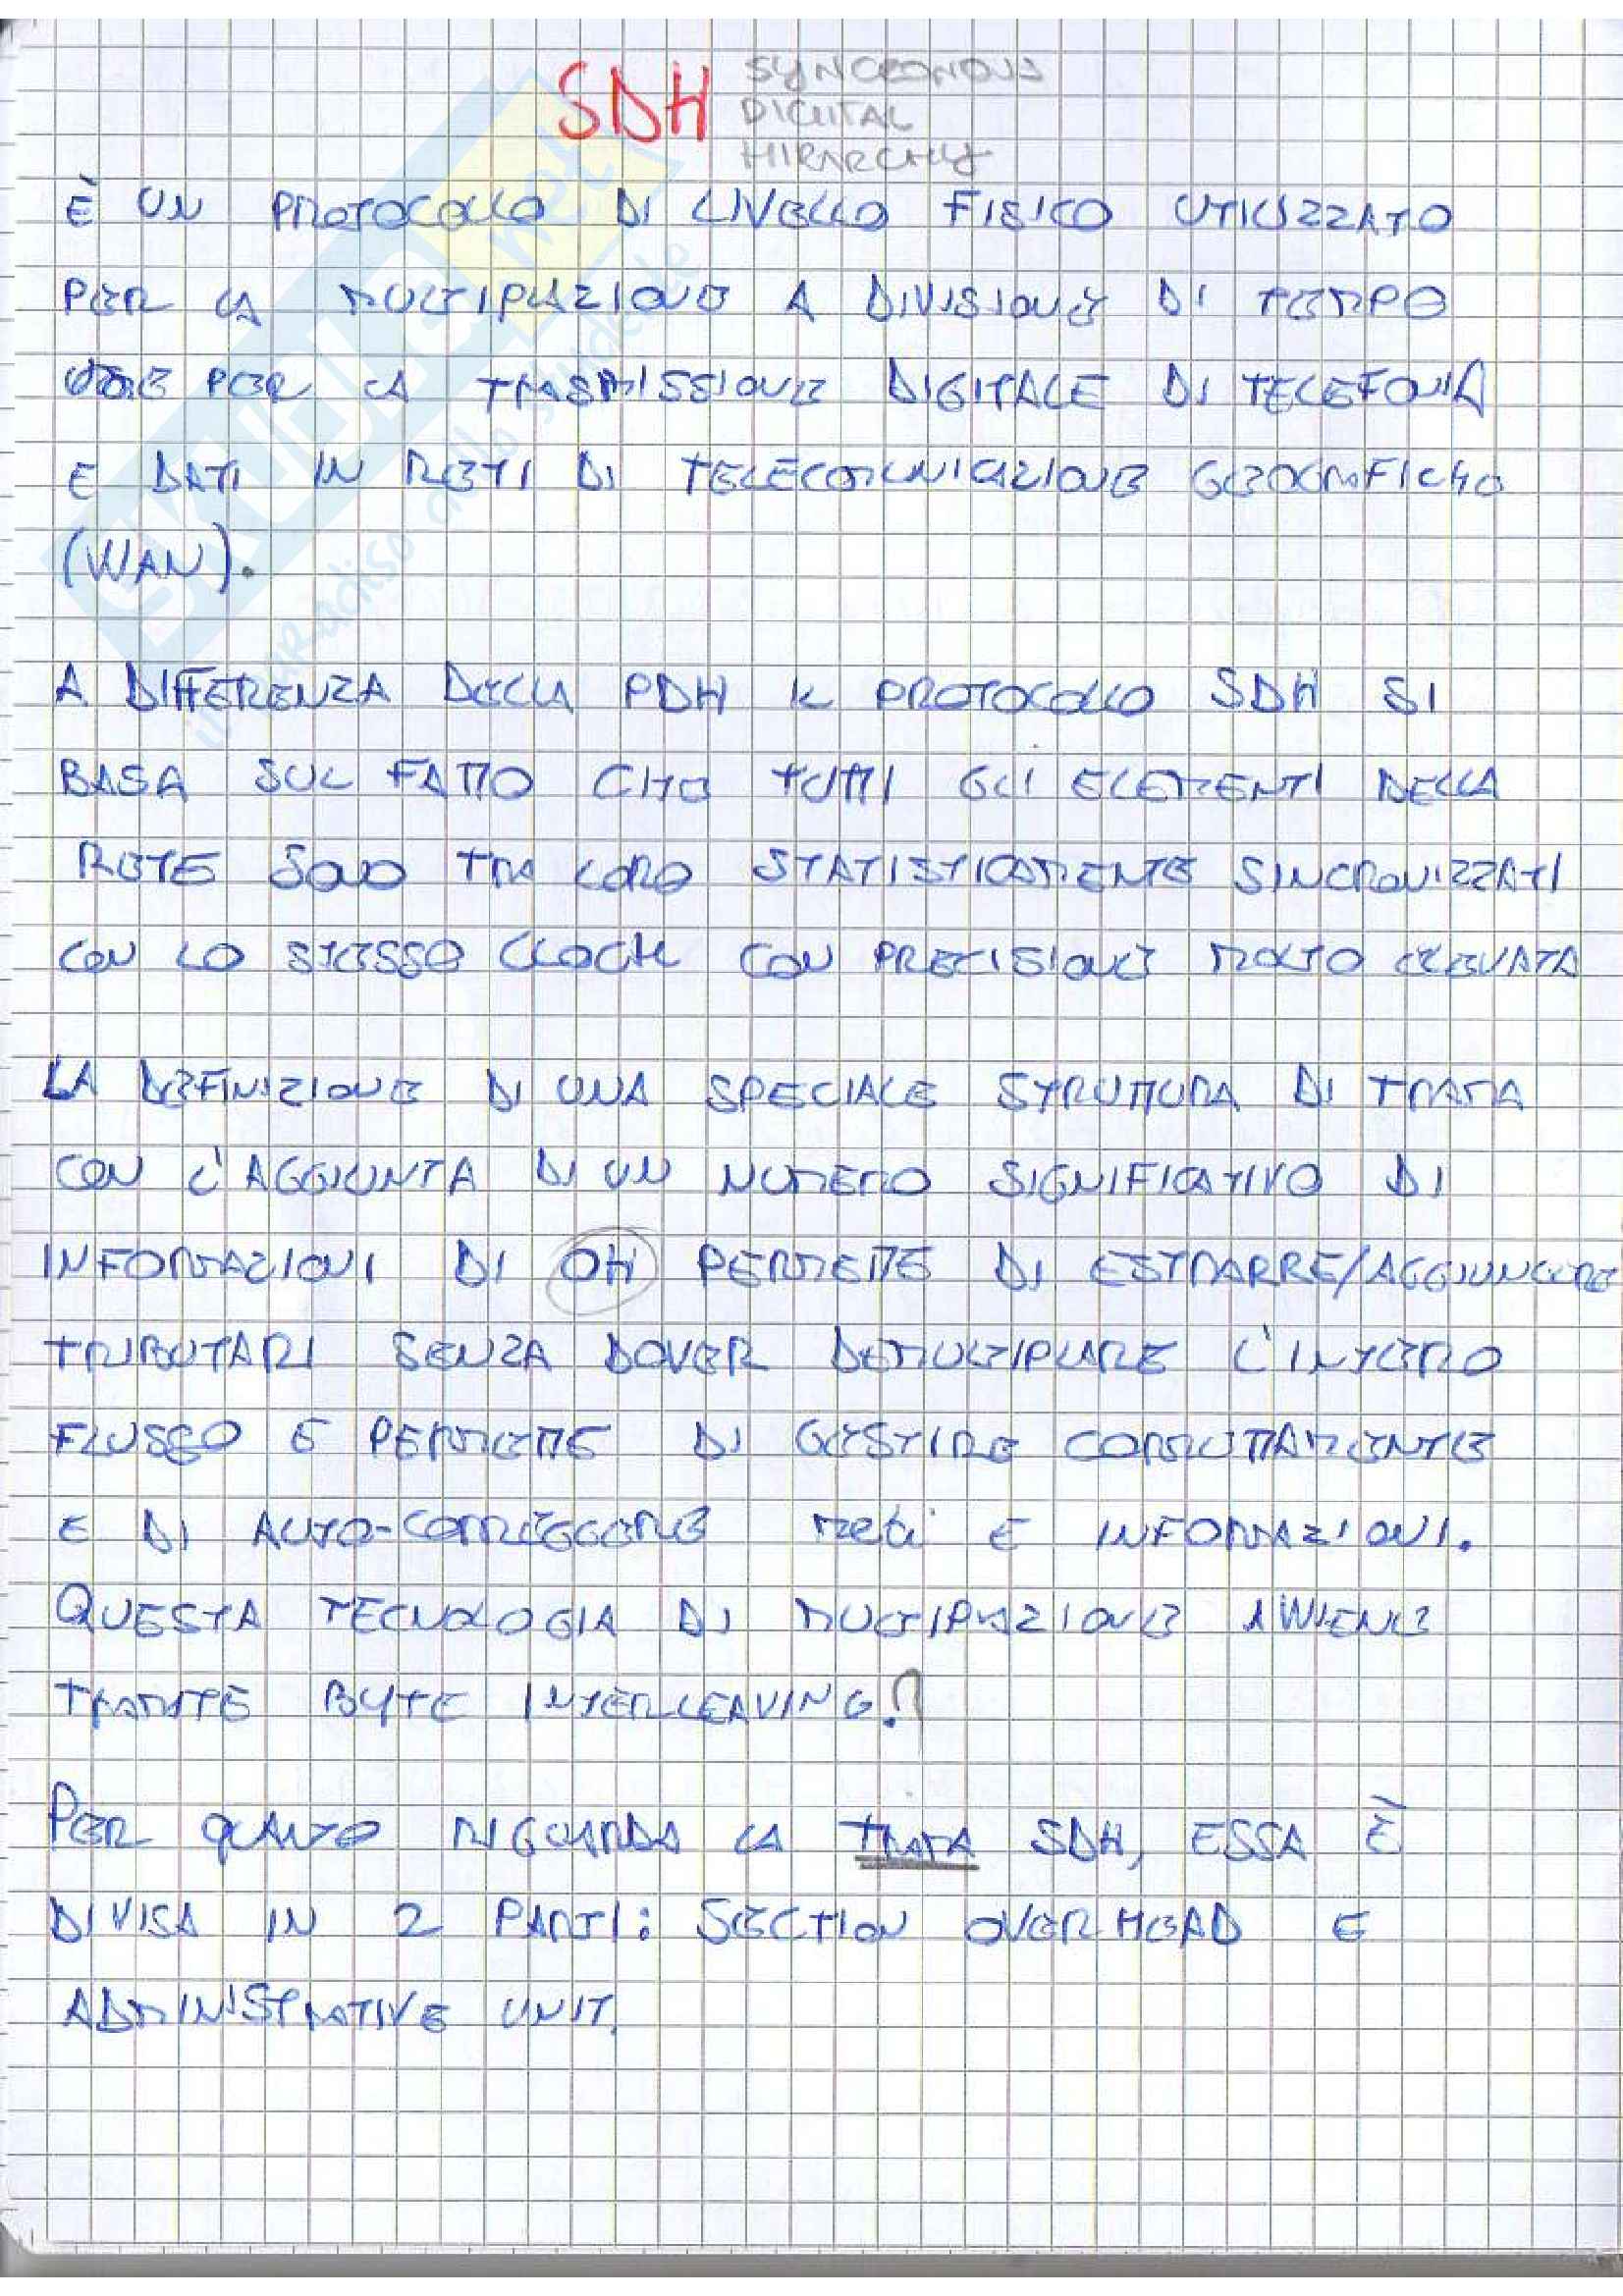 SDH SYNCRONOUS
DIGITAL
HIRARCHY
È UN PROTOCOLLO DI LIVELLO FISICO UTILIZZATO
PER LA MULTIPLAZIONE A DIVISIONE DI TEMPO
E PER LA TRASMISSIONE DIGITALE DI TELEFONIA
E DATI IN RETI DI TELECOMUNICAZIONE GEOGRAFICHE
(WAN).
A DIFFERENZA DELLA PDH IL PROTOCOLLO SDH SI
BASA SUL FATTO CHE TUTTI GLI ELEMENTI DELLA
RETE SONO TRA LORO STATISTICAMENTE SINCRONIZZATI
CON LO STESSO CLOCK CON PRECISIONE MOLTO ELEVATA
LA DEFINIZIONE DI UNA SPECIALE STRUTTURA DI TRAMA
CON L'AGGIUNTA DI UN NUMERO SIGNIFICATIVO DI
INFORMAZIONI DI OH PERMETTE DI ESTRARRE/AGGIUNGERE
TRIBUTARI SENZA DOVER DEMULTIPLARE L'INTERO
FLUSSO E PERMETTE DI GESTIRE CORRETTAMENTE
E DI AUTO-CORREGGERE reti E INFORMAZIONI.
QUESTA TECNOLOGIA DI MULTIPLAZIONE AVVIENE
TRAMITE BYTE INTERLEAVING.?
PER QUANTO RIGUARDA LA TRAMA SDH, ESSA È
DIVISA IN 2 PARTI: SECTION OVERHEAD E
ADMINISTRATIVE UNIT.
SKUOLA.net
il paradiso dello studente